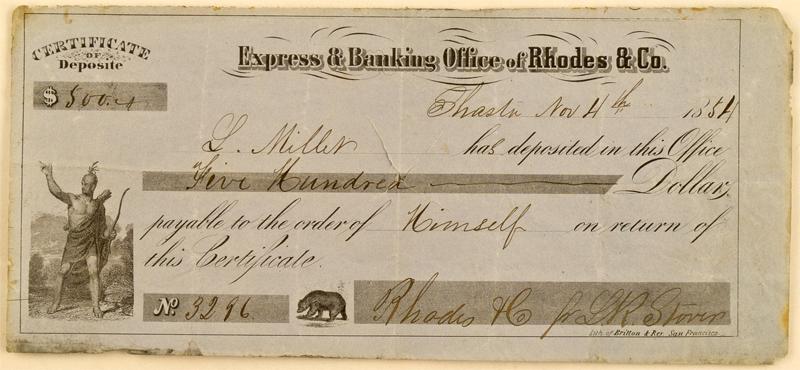 CERTIFICATE
OF
Deposite
Express & Banking Office of Rhodes & Co.
$ 500.
Shasta Nov 4th 1854
L. Millet has deposited in this Office
Five Hundred Dollars,
payable to the order of Himself on return of
this Certificate.
No 3296.
Rhodes & Co
pr L R Stover
Lith. of Britton & Rey San Francisco